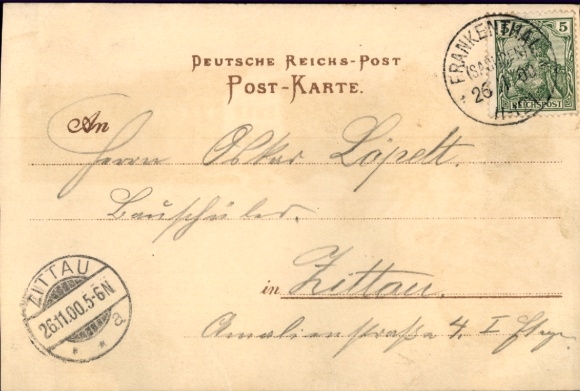 DEUTSCHE REICHS-POST
POST-KARTE.
FRANKENTHAL
5
REICHSPOST
An
Herrn Oskar Löpelt.
Bauschüler.
in Zittau.
Amalienstraße 4. I
ZITTAU
26.11.00.5-6N
a